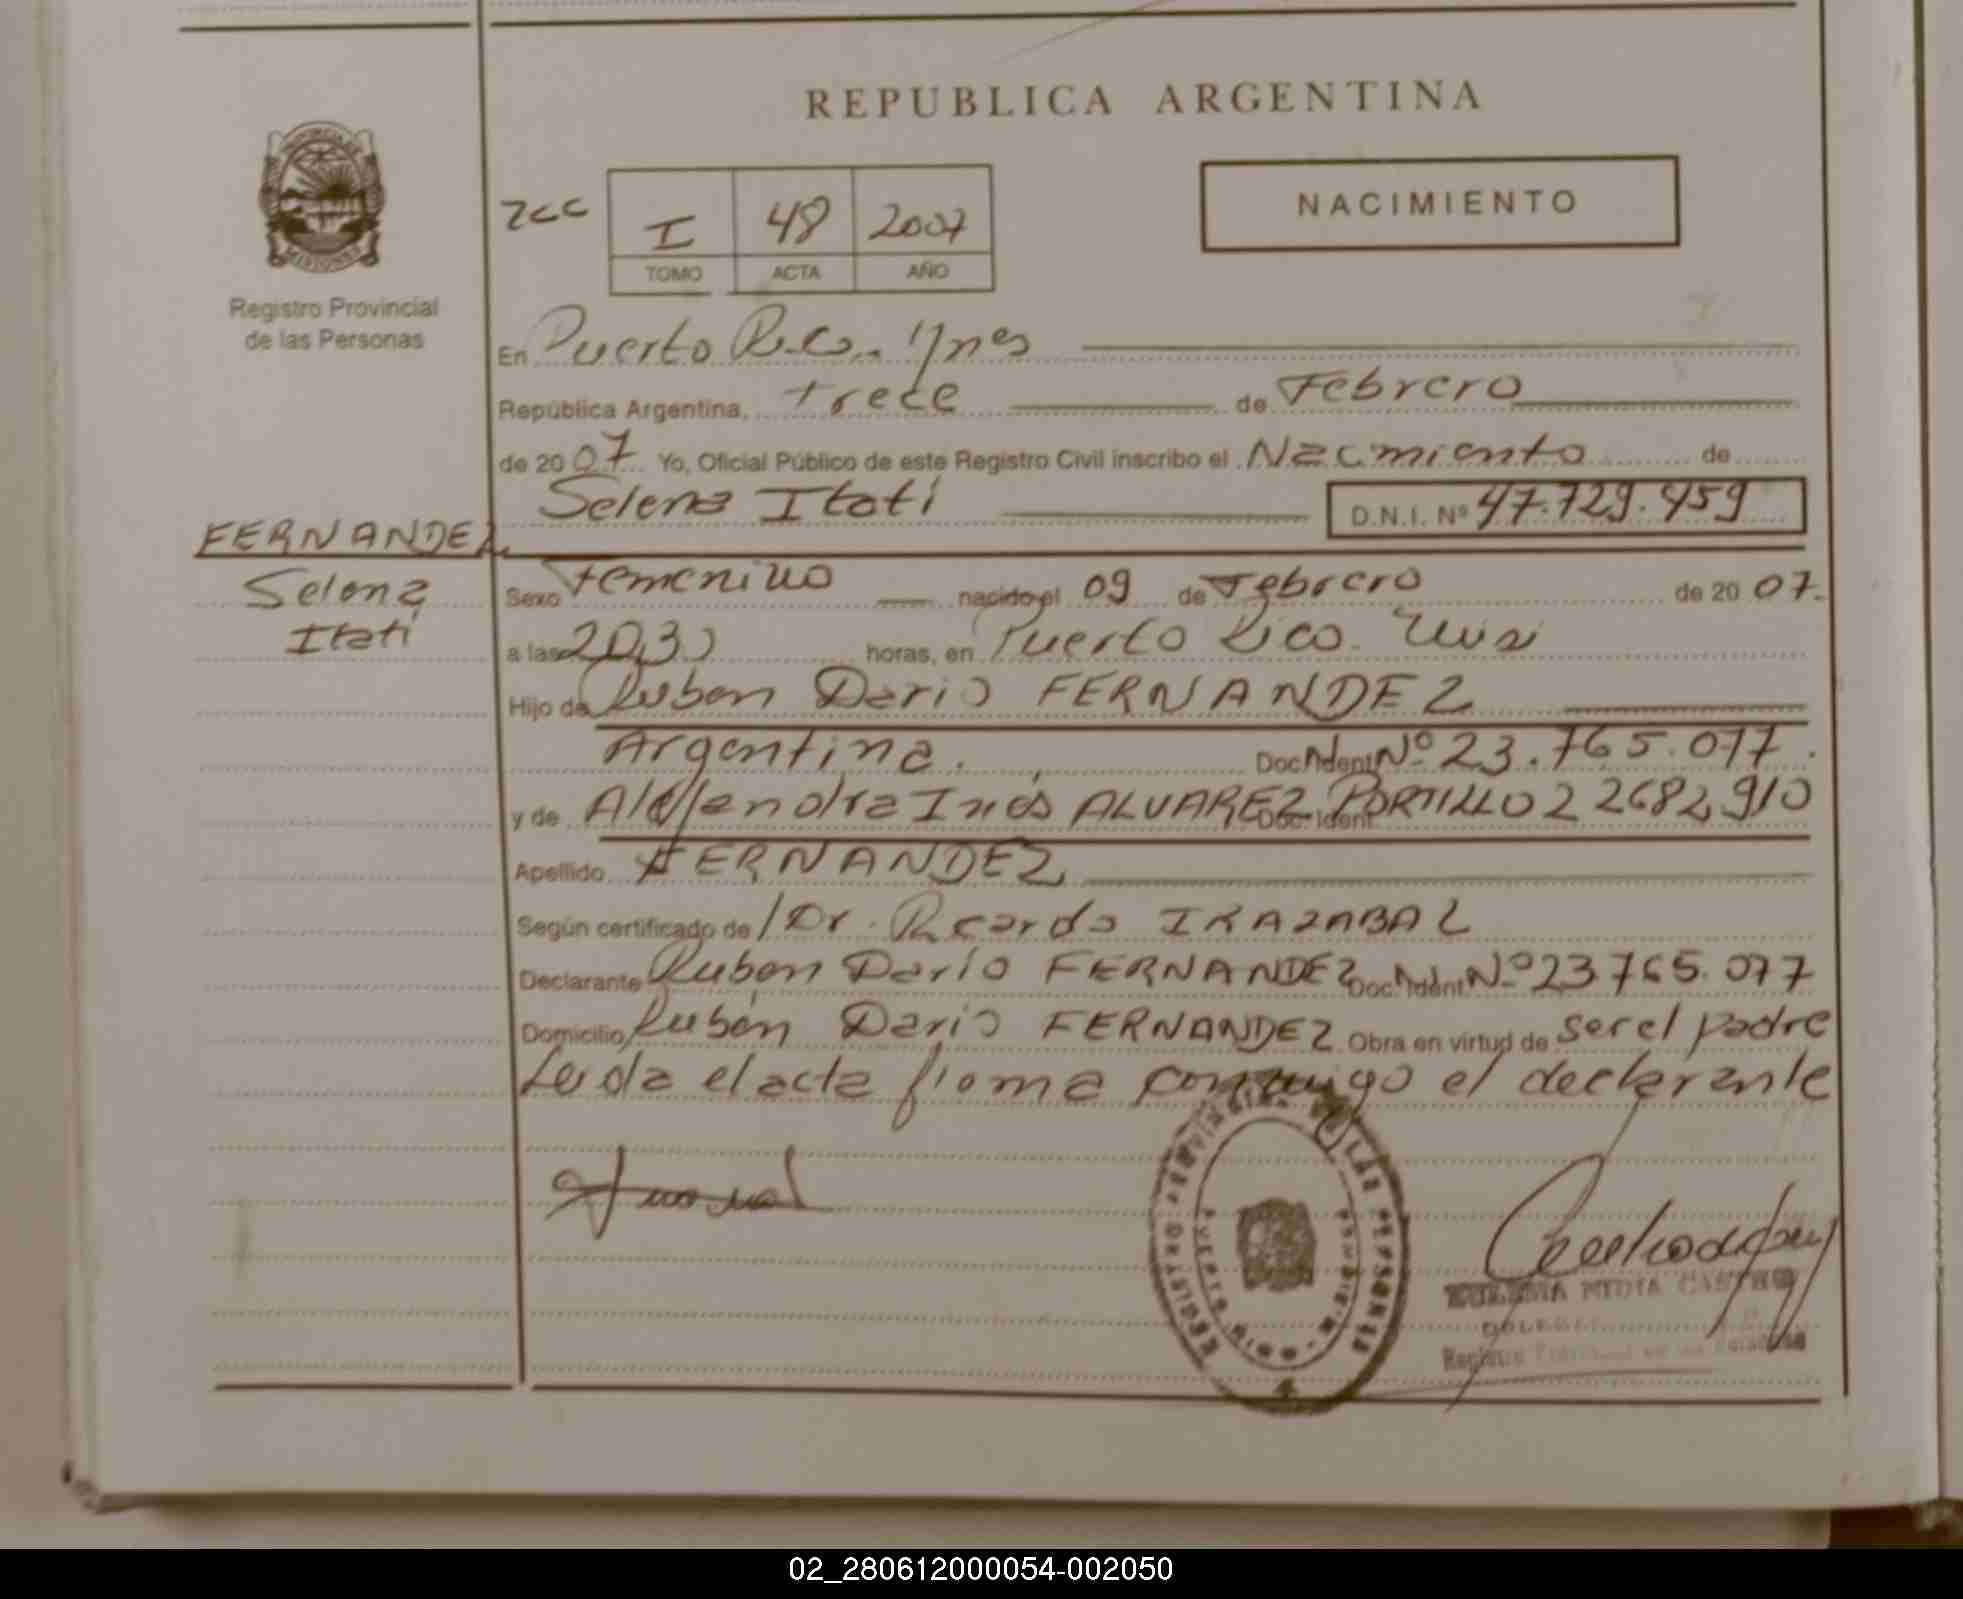 REPUBLICA ARGENTINA
PROVINCIA DE
MISIONES
Registro Provincial
de las Personas
zcc I 48 2007
TOMO ACTA AÑO
NACIMIENTO
En Puerto Rico
República Argentina, trece de Febrero
de 2007 Yo, Oficial Público de este Registro Civil inscribo el Nacimiento de
Selena Itati D.N.I. Nº 47.729.459
FERNANDEZ
Selena
Itati
Sexo Femenino nacido el 09 de Febrero de 2007.
a las 20,30 horas, en Puerto Rico.
Hijo de Ruben Dario FERNANDEZ
Argentina. Doc. Ident. Nº 23.765.077.
y de Alejandra Inés ALVAREZ PORTILLO Doc. Ident. 22682910
Apellido FERNANDEZ
Según certificado de Dr. Ricardo IRAZABAL
Declarante Ruben Darío FERNANDEZ Doc. Ident. Nº 23765.077
Domicilio Rubén Dario FERNANDEZ Obra en virtud de ser el padre
Leida el acta firma conmigo el declarante
CASTRO
Registro
02_280612000054-002050